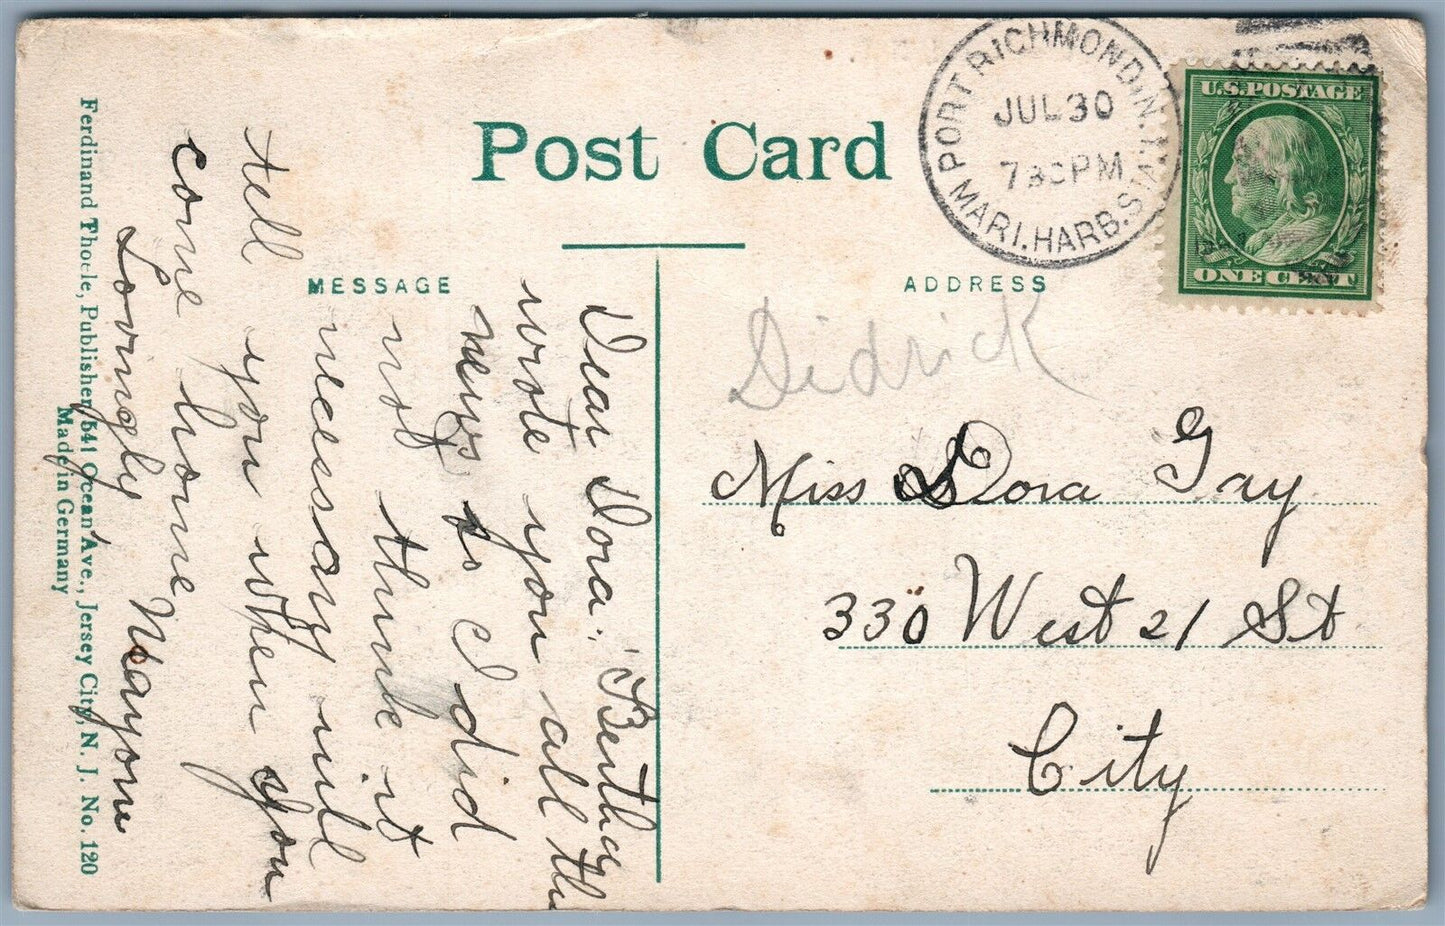 Post Card
MESSAGE
ADDRESS
PORT RICHMOND, N.Y.
JUL 30
730PM
MARI. HARB. STA.
U.S. POSTAGE
ONE CENT
Didrick
Miss Dora Gay
330 West 21 St
City
Dear Dora: Bertha
wrote you all the
news so I did
not think it
necessary will
tell you when you
come home
Lovingly
Ferdinand Thoele, Publisher, 541 Ocean Ave., Jersey City, N. J. No. 120
Made in Germany